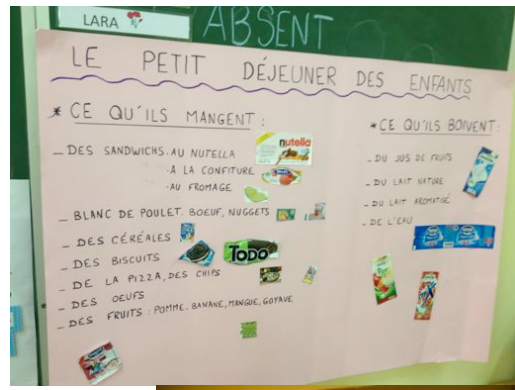 LARA
ABSENT
LE PETIT DÉJEUNER DES ENFANTS
* CE QU'ILS MANGENT :
_ DES SANDWICHS. AU NUTELLA
. A LA CONFITURE
. AU FROMAGE
nutella
_ BLANC DE POULET. BOEUF, NUGGETS
_ DES CÉRÉALES
_ DES BISCUITS
TODO
_ DE LA PIZZA, DES CHIPS
_ DES OEUFS
_ DES FRUITS : POMME. BANANE, MANGUE, GOYAVE
* CE QU'ILS BOIVENT :
_ DU JUS DE FRUITS
_ DU LAIT NATURE
_ DU LAIT AROMATISÉ
_ DE L'EAU